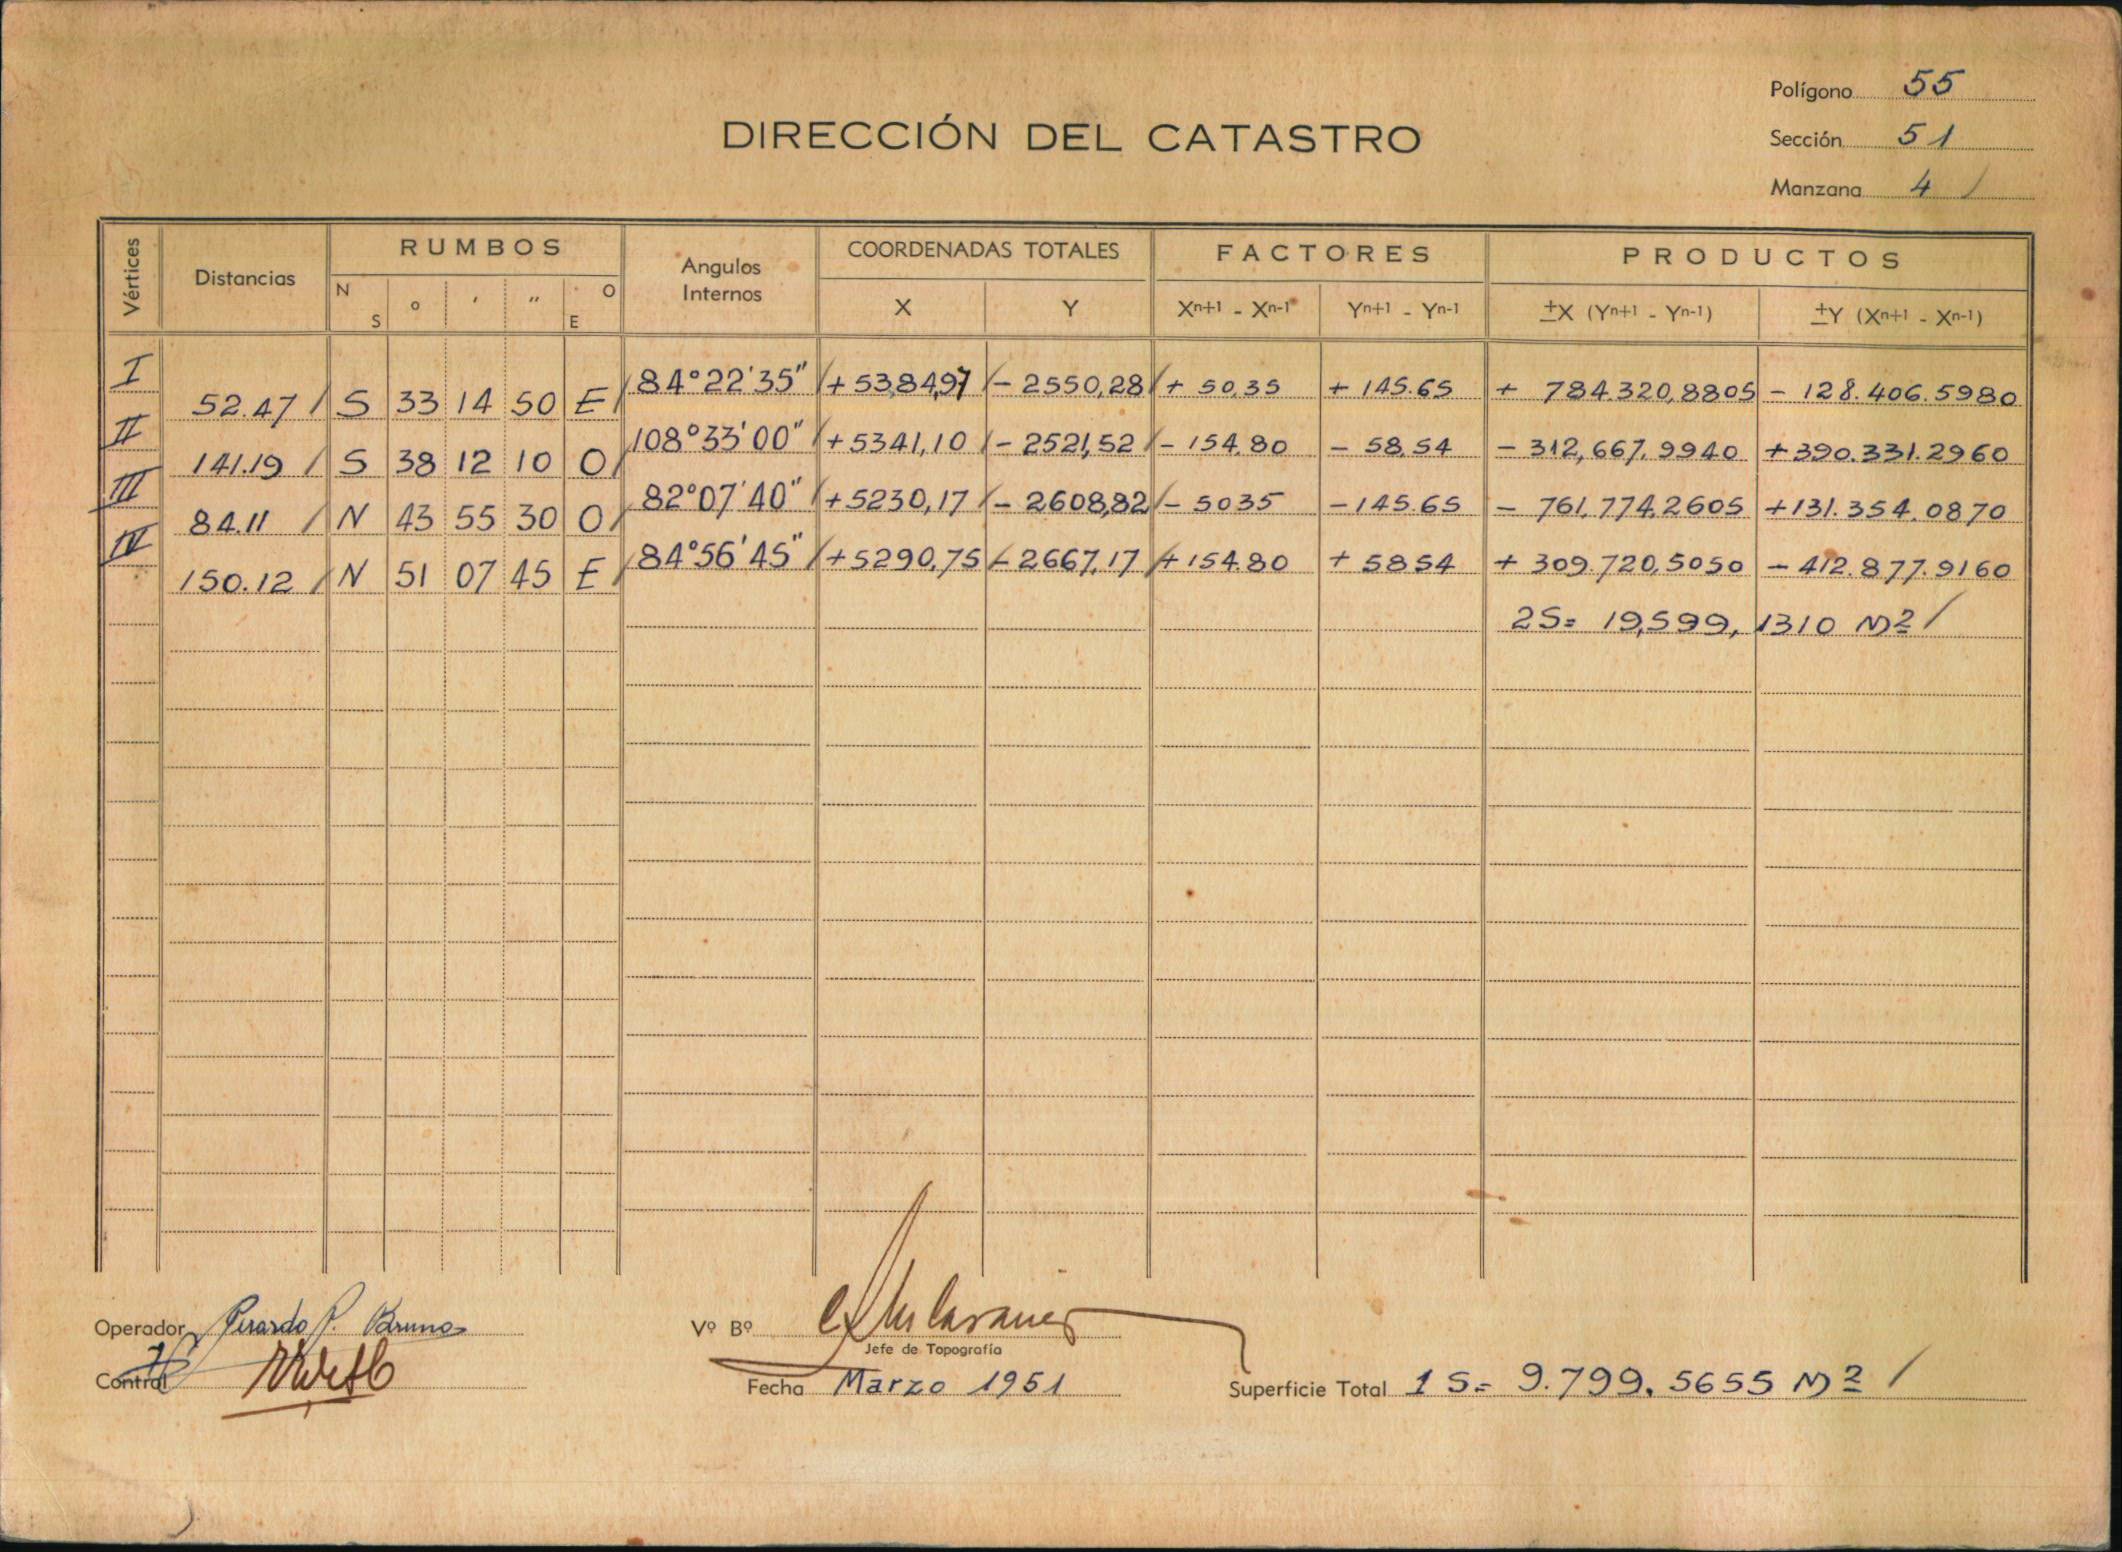 Polígono 55
DIRECCIÓN DEL CATASTRO
Sección 51
Manzana 4 /
Vértices Distancias RUMBOS Angulos Internos COORDENADAS TOTALES FACTORES PRODUCTOS
N S ° ' " O E X Y Xn+1 - Xn-1 Yn+1 - Yn-1 ±X (Yn+1 - Yn-1) ±Y (Xn+1 - Xn-1)
I 84°22'35" / +5384,97 / - 2550,28 / + 50,35 + 145.65 + 784.320,8805 - 128.406.5980
52.47 / S 33 14 50 E /
II 108°33'00" / +5341,10 / - 2521,52 / - 154,80 - 58,54 - 312,667,9940 +390.331.2960
141.19 / S 38 12 10 O /
III 82°07'40" / +5230,17 / - 2608,82 / - 5035 - 145.65 - 761,774,2605 +131.354.0870
84.11 / N 43 55 30 O /
IV 84°56'45" / +5290,75 / - 2667,17 / + 154.80 + 5854 + 309.720,5050 - 412.877.9160
150.12 / N 51 07 45 E /
2S= 19,599, 1310 M2 /
Operador Gerardo P. Bruno
Vº Bº
Jefe de Topografía
Control
Fecha Marzo 1951
Superficie Total 1 S= 9.799.5655 M2 /